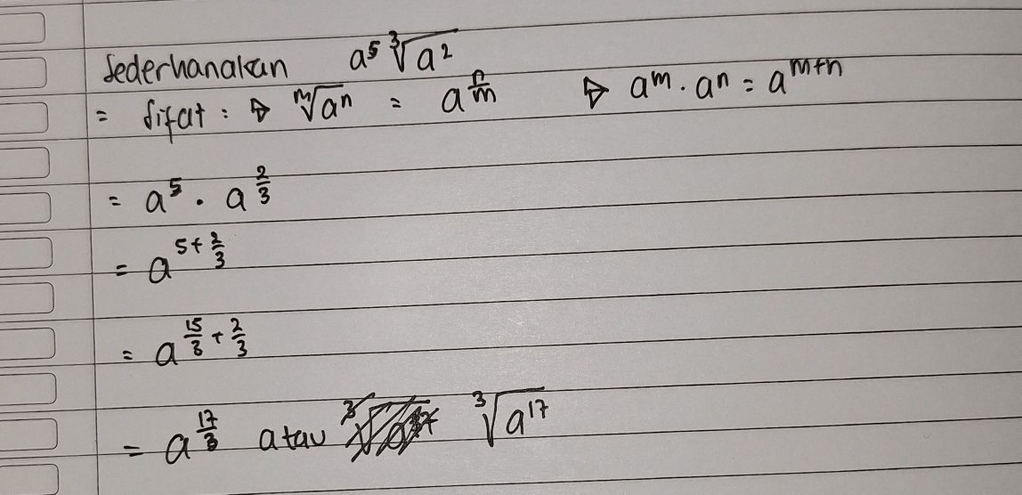 Sederhanakan a⁵ ∛a²
= Sifat : ⇨ ᵐ√aⁿ = a^(n/m) ⇨ a^m · a^n = a^(m+n)
= a⁵ · a^(2/3)
= a^(5+2/3)
= a^(15/3 + 2/3)
= a^(17/3) atau ∛a¹⁷